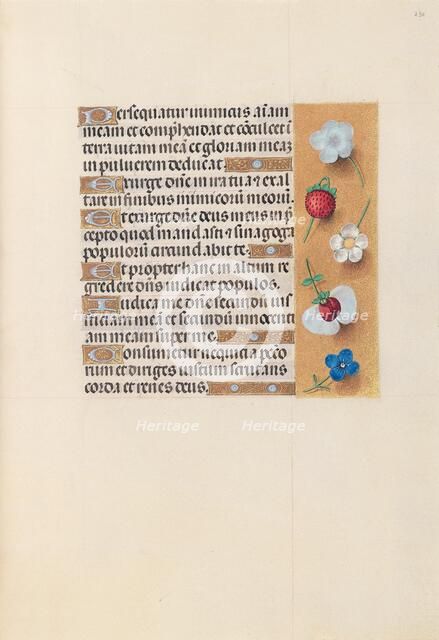 230
Persequatur inimicus aīam
meam et comp̄hendat et cōculcet ī
terra uitam meā et gloriam meaʒ
in puluerem deducat.
Exurge dn̄e in ira tua et exal
tare in finibus inimicorum meorū.
Et exurge dn̄e deus meus in p̄
cepto quod mandasti et sinagoga
populorum circundabit te.
Et propter hanc in altum re
gredere dn̄s iudicat populos.
Iudica me dn̄e secundū ius
ticiam meā et secundū innocenti
am meam super me.
Consumetur nequicia pecō
rum et diriges iustum scrutans
corda et renes deus.
Heritage
Heritage
Heritage
Heritage
Heritage
Heritage